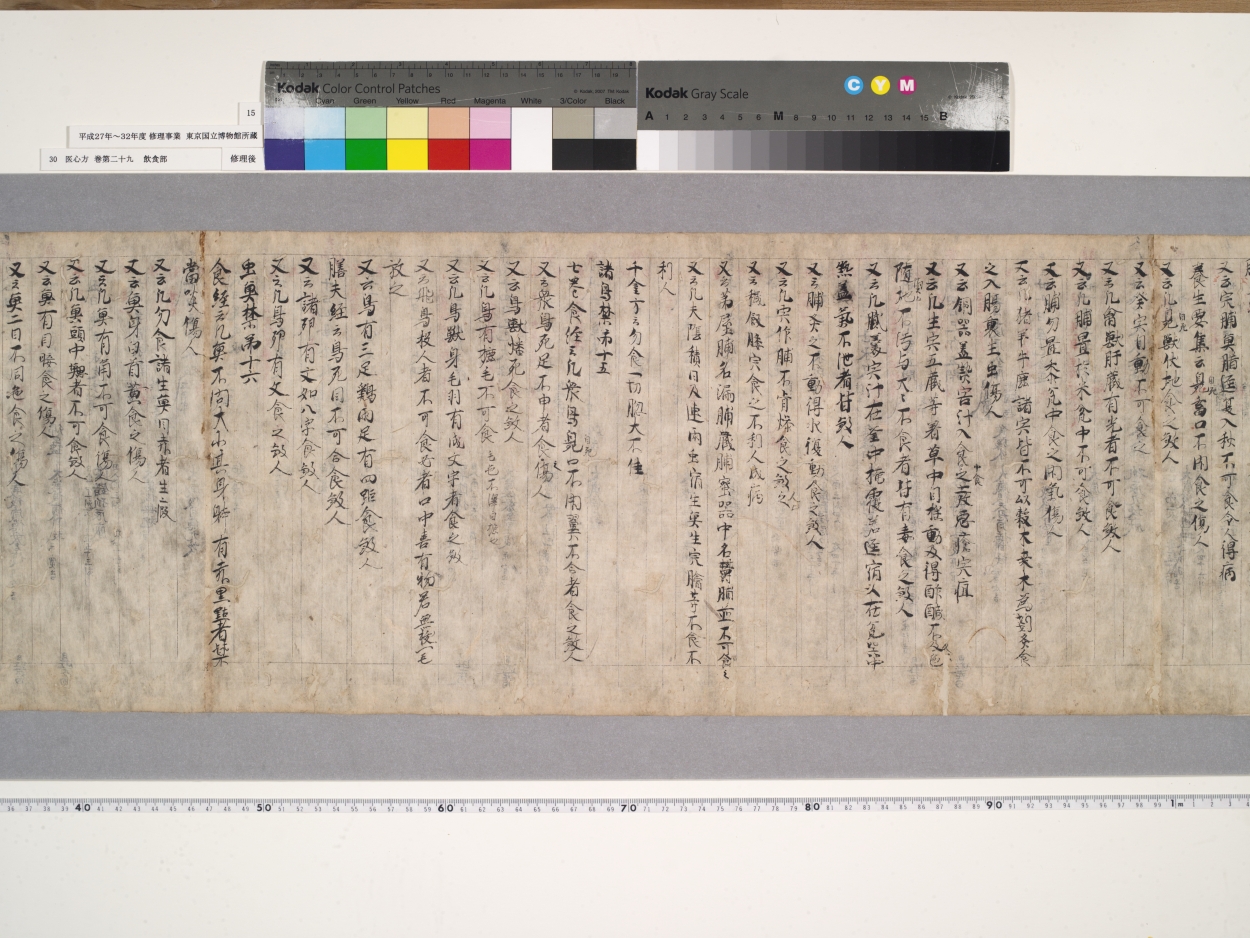 15
平成27年～32年度 修理事業 東京国立博物館所蔵
30 医心方 巻第二十九 飲食部
修理後
Kodak Color Control Patches
Cyan Green Yellow Red Magenta White 3/Color Black
Kodak Gray Scale
C Y M
A 1 2 3 4 5 6 M 8 9 10 11 12 13 14 15 B
又云完脯臭腊逕夏入秋不可食令人得病
養生要集云自死鳥口不閉食之傷人
又云凡自死獣伏地食之煞人
又云 完自動不可食之
又云凡禽獣肝蔵有光者不可食煞人
又云凡脯置於米瓮中不可食煞人
又云脯勿置黍瓮中食之閉氣傷人
又云凡猪羊牛鹿諸完皆不可以穀木桑木為剗炙食
之入腸裏生虫傷人
又云銅器蓋熱 汁入食中食之發惡瘡完疽
又云凡生完五蔵等著草中自搖動及得酢醎不反色
随地不污与犬犬不食者皆有毒食之煞人
又云凡 完汁在釜中掩覆若逕宿又在瓮器中
熱蓋氣不泄者皆煞人
又云脯炙之不動得水復動食之煞人
又云凡完作脯不肯燥食之煞人
又云穢飯 完食之不利人成病
又云茅屋脯名漏脯蔵脯密器中名欝脯並不可食之
又云凡 陰 日久連雨虫宿生 生完膾等不食不
利人
千金方云勿食一切腦大不佳
諸鳥禁第十五
七巻食経云凡衆鳥自死口不閉翼不合者食之煞人
又云衆鳥死足不申者食之傷人
又云鳥獣燔死食之煞人
又云凡鳥有 毛不可食
又云凡鳥獣身毛羽有成文字者食之煞
又云飛鳥投人者不可食 者口中喜有物若無拔一毛
放之
又云鳥有三足鷄兩足有四距食煞人
膳夫経云鳥死目不可合食煞人
又云諸卵有文如八字食煞人
又云凡鳥卵有文食之煞人
虫魚禁第十六
食経云凡魚不問大小其身体有赤黒點者禁
當噉傷人
又云凡勿食諸生魚目赤者生瘕
又云魚身白首黄食之傷人
又云凡魚有角不可食傷人
又云凡魚頭中無 者不可食煞人
又云魚有目睞食之傷人
又云魚二目不同色食之傷人